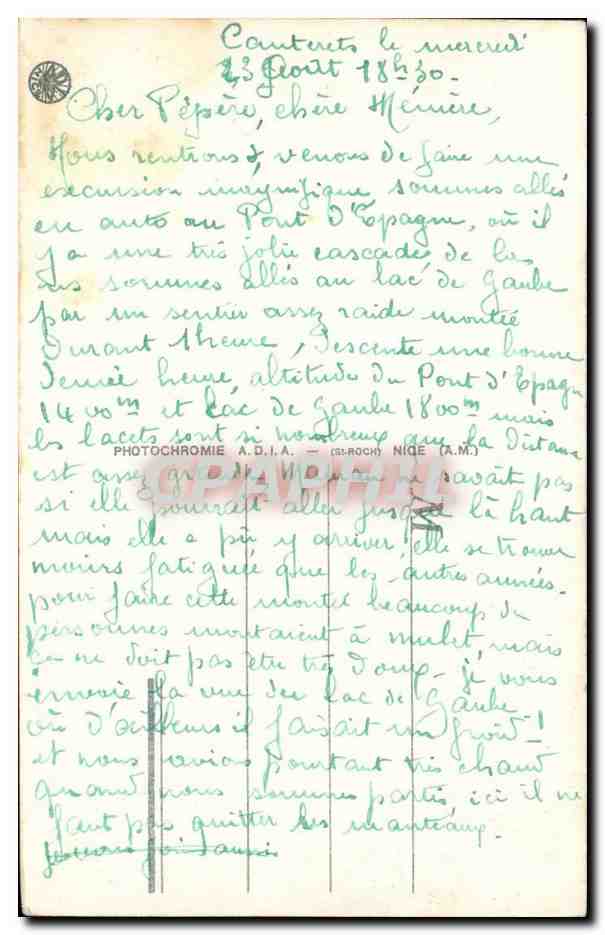 Cauterets le mercredi
23 Août 18h30.
Cher Pépère, chère Mémère,
Nous rentrons &, venons de faire une
excursion magnifique sommes allés
en auto au Pont d'Epagne, où il
y a une très jolie cascade, de là
sommes allés au lac de Gaube
par un sentier assez raide montée
durant 1 heure, descente une bonne
demie heure, altitude du Pont d'Epagn
1400m et Lac de Gaube 1800m mais
les lacets sont si nombreux que la distance
PHOTOCHROMIE A.D.I.A. — (St-ROCH) NICE (A.M.)
est assez grande. Maman ne savait pas
CPAPHIL
si elle pourrait aller jusque là haut
M
mais elle a pu y arriver, elle se trouve
moins fatiguée que les autres années.
pour faire cette montée beaucoup de
personnes montaient à mulet, mais
ça ne doit pas être très doux. je vous
envoie la vue du lac de Gaube
où d'ailleurs il faisait un froid !
et nous avions pourtant très chaud
quand nous sommes partis, ici il ne
faut pas quitter les manteaux.